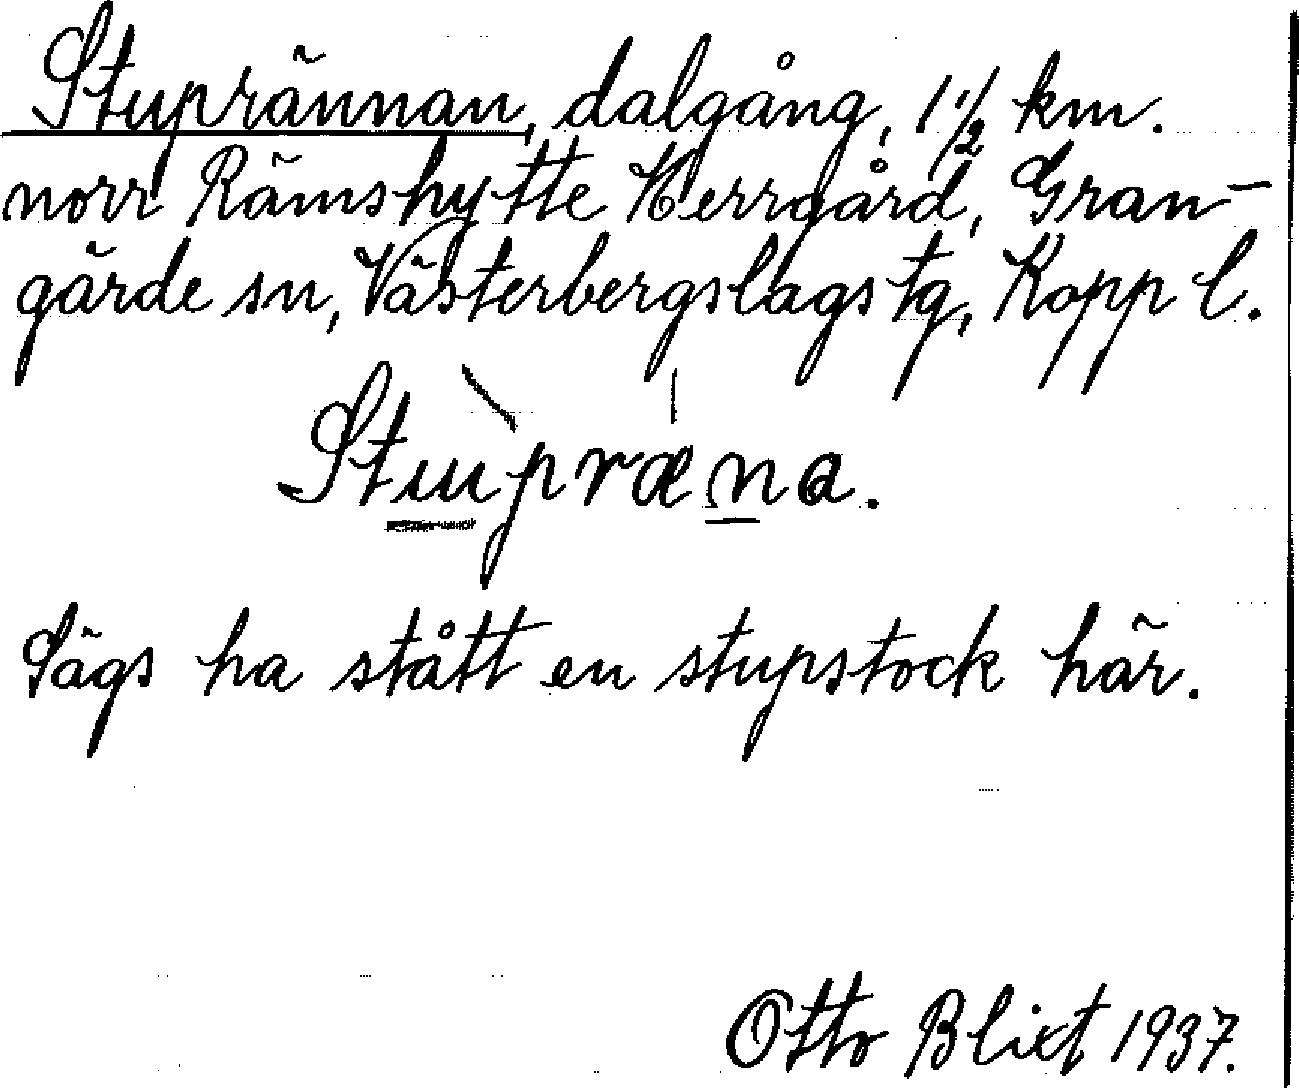 Stuprännan, dalgång, 1 1/2 km.
norr Rämshytte Herrgård, Gran-
gärde sn, Västerbergslags tg, Kopp l.
Stupræna.
Sägs ha stått en stupstock här.
Otto Blixt 1937.